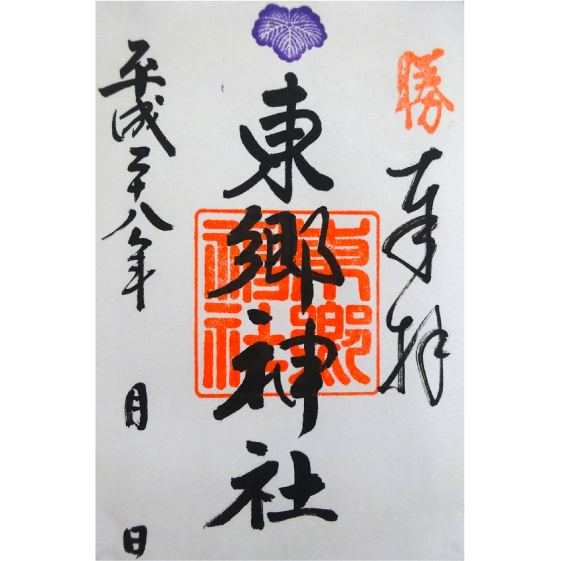 勝
奉拝
東郷神社
東郷神社
平成二十八年 月 日